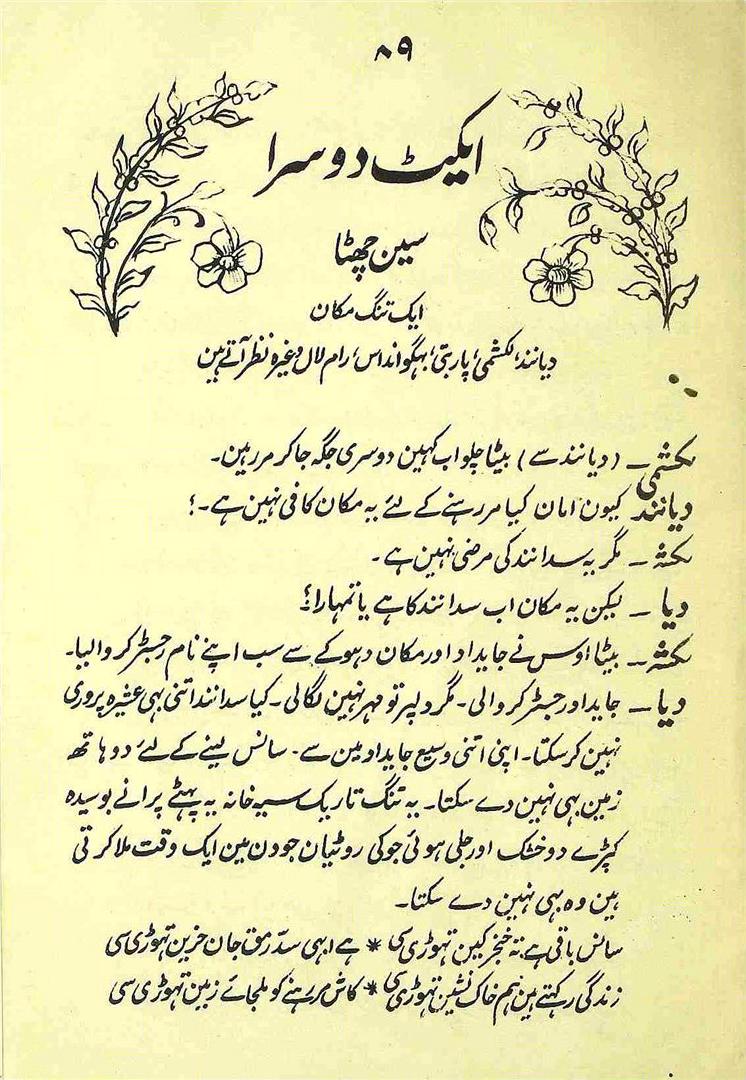 ۸۹
ایکٹ دوسرا
سین چھٹا
ایک تنگ مکان
دیانند، لکشمی، پاربتی، بہگوانداس، رام لال وغیرہ نظر آتے ہین
لکشمی ۔ (دیانند سے) بیٹا چلو اب کہین دوسری جگہ جا کر مر رہین۔
دیانند کیون امان کیا مر رہنے کے لئے یہ مکان کافی نہین ہے۔؟
لکشـ ۔ مگر یہ سدانند کی مرضی نہین ہے۔
دیا ۔ لیکن یہ مکان اب سدانند کا ہے یا تمہارا؟
لکشـ ۔ بیٹا اوس نے جایداد اور مکان دہوکے سے سب اپنے نام رجسٹر کروالیا۔
دیا ۔ جایداد رجسٹر کروالی۔ مگر دلپر تو مہر نہین لگالی۔ کیا سدانند اتنی بہی عشیرہ پروری
نہین کر سکتا۔ اپنی اتنی وسیع جایداد مین سے۔ سانس لینے کے لئے دو ہاتھ
زمین بہی نہین دے سکتا۔ یہ تنگ تاریک سیہ خانہ یہ پہٹے پرانے بوسیدہ
کپڑے دو خشک اور جلی ہوئی جو کی روٹیان جو دن مین ایک وقت ملا کرتی
ہین وہ بہی نہین دے سکتا۔
سانس باقی ہے تہ خنجر کین تہوڑی سی * ہے ابہی سدّ رمق جان حزین تہوڑی سی
زندگی رکہتے ہین ہم خاک نشین تہوڑی سی * کاش مر رہنے کو ملجائے زمین تہوڑی سی